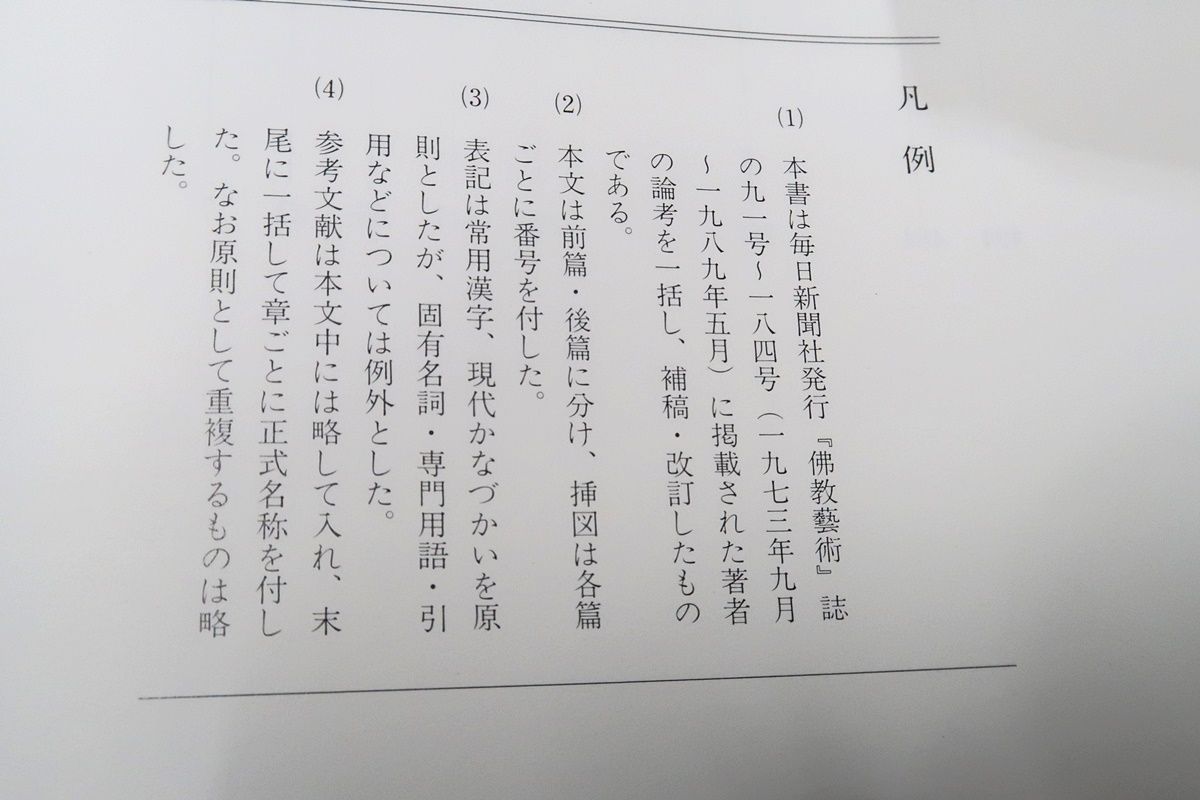 凡例
(1) 本書は毎日新聞社発行『佛教藝術』誌
の九一号～一八四号（一九七三年九月
～一九八九年五月）に掲載された著者
の論考を一括し、補稿・改訂したもの
である。
(2) 本文は前篇・後篇に分け、挿図は各篇
ごとに番号を付した。
(3) 表記は常用漢字、現代かなづかいを原
則としたが、固有名詞・専門用語・引
用などについては例外とした。
(4) 参考文献は本文中には略して入れ、末
尾に一括して章ごとに正式名称を付し
た。なお原則として重複するものは略
した。